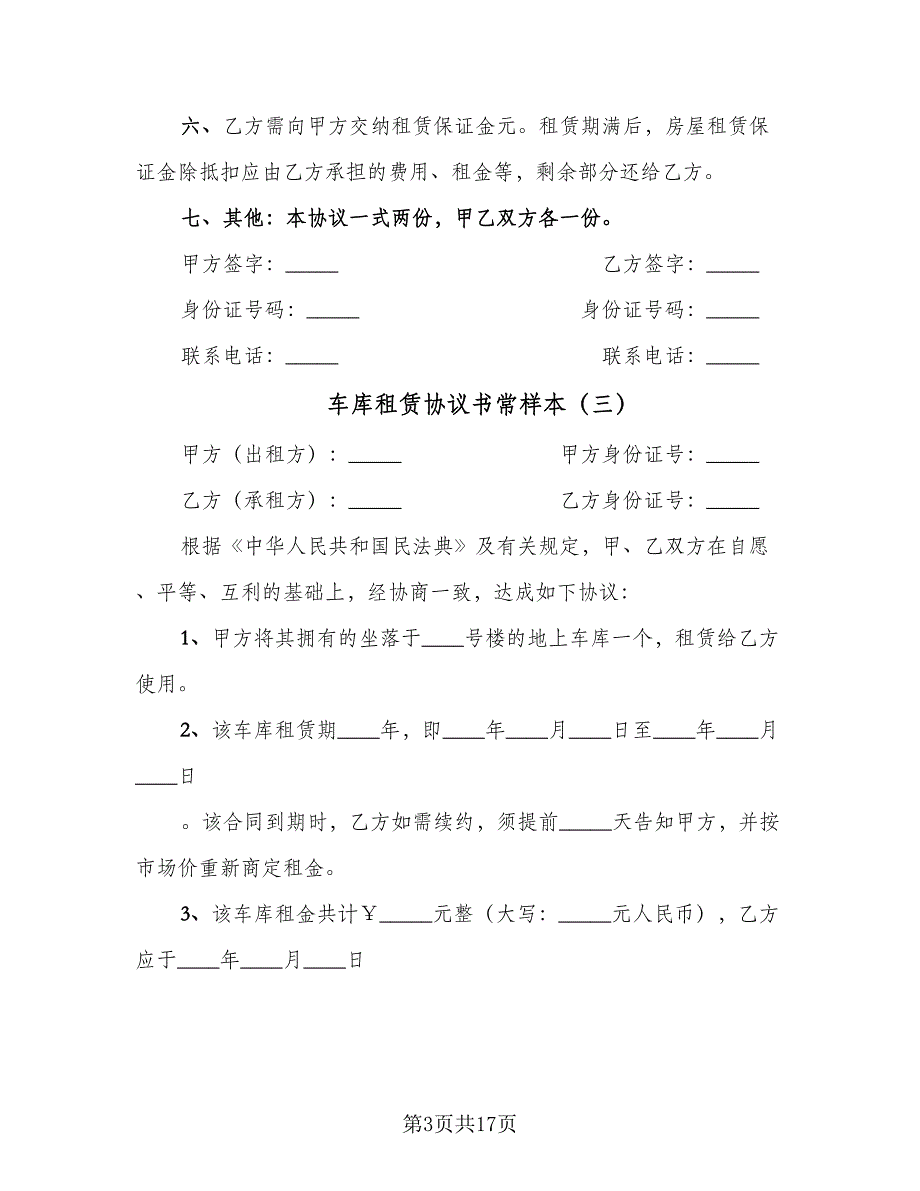 六、乙方需向甲方交纳租赁保证金元。租赁期满后，房屋租赁保
证金除抵扣应由乙方承担的费用、租金等，剩余部分还给乙方。
七、其他：本协议一式两份，甲乙双方各一份。
甲方签字：_____ 乙方签字：_____
身份证号码：_____ 身份证号码：_____
联系电话：_____ 联系电话：_____
车库租赁协议书常样本（三）
甲方（出租方）：_____ 甲方身份证号：_____
乙方（承租方）：_____ 乙方身份证号：_____
根据《中华人民共和国民法典》及有关规定，甲、乙双方在自愿
、平等、互利的基础上，经协商一致，达成如下协议：
1、甲方将其拥有的坐落于____号楼的地上车库一个，租赁给乙方
使用。
2、该车库租赁期____年，即____年____月____日至____年____月
____日
。该合同到期时，乙方如需续约，须提前_____天告知甲方，并按
市场价重新商定租金。
3、该车库租金共计￥_____元整（大写：_____元人民币），乙方
应于____年____月____日
第3页共17页